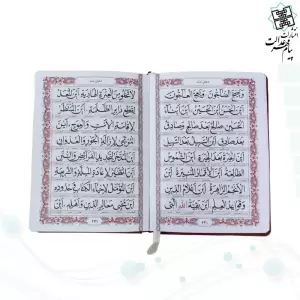 انتشارات
پیام عدالت
دعای ندبه
وَ نَهَجَ الصّالِحُونَ وَ نَهَجَ الصّالِحُونَ
اَیْنَ الْحَسَنُ اَیْنَ الْحُسَیْنُ اَیْنَ اَبْناءُ
الْحُسَیْنِ صالِحٌ بَعْدَ صالِحٍ وَ صادِقٌ
بَعْدَ صادِقٍ اَیْنَ السَّبیلُ بَعْدَ السَّبیلِ
اَیْنَ الْخِیَرَةُ بَعْدَ الْخِیَرَةِ اَیْنَ الشُّمُوسُ
الطّالِعَةُ اَیْنَ الْاَقْمارُ الْمُنیرَةُ اَیْنَ
الْاَنْجُمُ الزّاهِرَةُ اَیْنَ اَعْلامُ الدّینِ
وَ قَواعِدُ الْعِلْمِ اَیْنَ بَقِیَّةُ اللهِ الَّتی
دعای ندبه
لا تَخْلُو مِنَ الْعِتْرَةِ الْهادِیَةِ اَیْنَ الْمُعَدُّ
لِقَطْعِ دابِرِ الظَّلَمَةِ اَیْنَ الْمُنْتَظَرُ
لِاِقامَةِ الْاَمْتِ وَ الْعِوَجِ اَیْنَ
الْمُرْتَجی لِاِزالَةِ الْجَوْرِ وَ الْعُدْوانِ
اَیْنَ الْمُدَّخَرُ لِتَجْدیدِ الْفَرائِضِ وَ السُّنَنِ
اَیْنَ الْمُتَخَیَّرُ لِاِعادَةِ الْمِلَّةِ وَ الشَّریعَةِ
اَیْنَ الْمُؤَمَّلُ لِاِحْیاءِ الْکِتابِ وَ حُدُودِهِ
اَیْنَ مُحْیی مَعالِمِ الدّینِ وَ اَهْلِهِ اَیْنَ